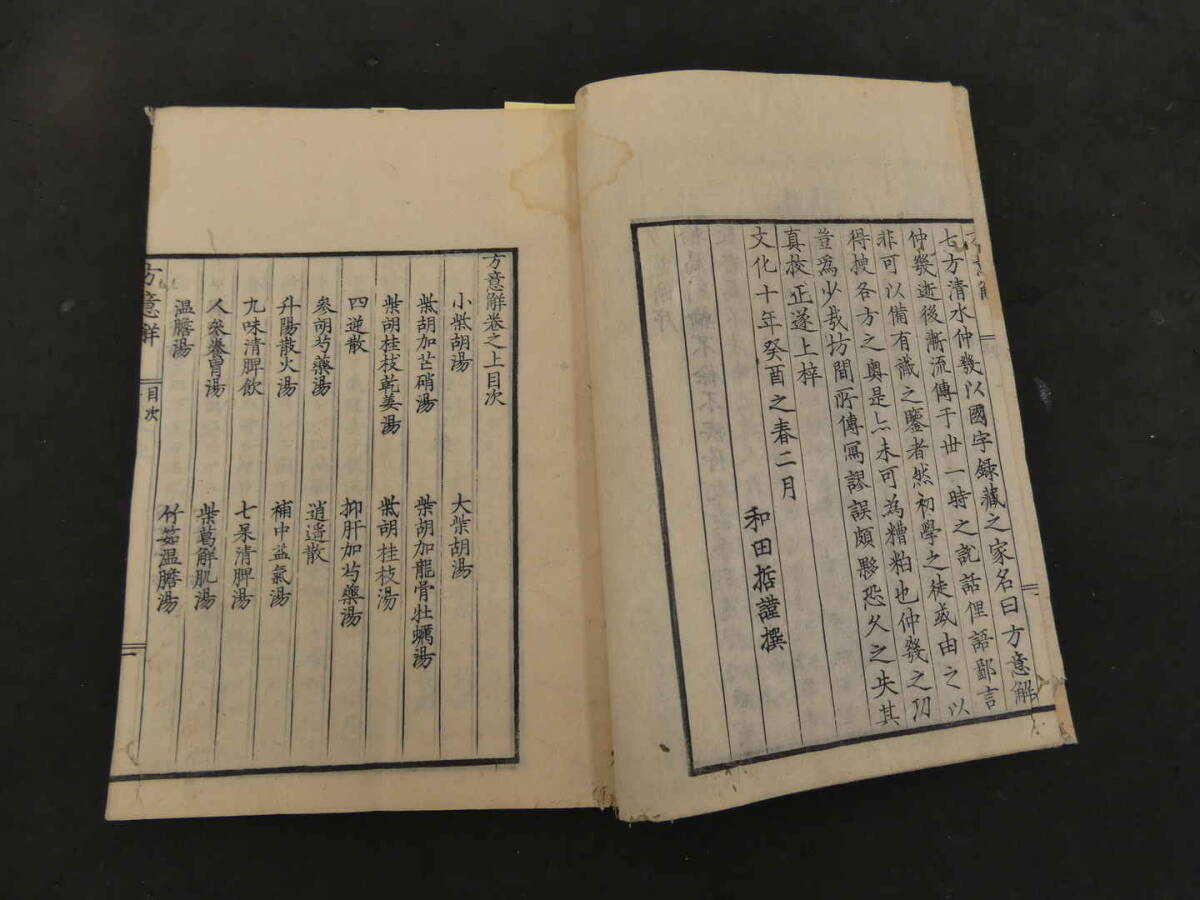 七方清水仲發以國字録藏之家名曰方意解
仲發逝後漸流傳于世一時之説話俚語鄙言
非可以備有識之鑒者然初學之徒或由之以
得搜各方之奥是亦未可為糟粕也仲發之功
豈為少哉坊間所傳冩謬誤頗夥恐久之失其
真挍正遂上梓
文化十年癸酉之春二月
和田哲謹撰
方意解卷之上目次
小柴胡湯
大柴胡湯
柴胡加芒硝湯
柴胡加龍骨牡蠣湯
柴胡桂枝乾姜湯
柴胡桂枝湯
四逆散
抑肝加芍藥湯
參胡芍藥湯
逍遥散
升陽散火湯
補中益氣湯
九味清脾飲
七果清脾湯
人參養胃湯
柴葛解肌湯
温膽湯
竹茹温膽湯
方意解
目次
一